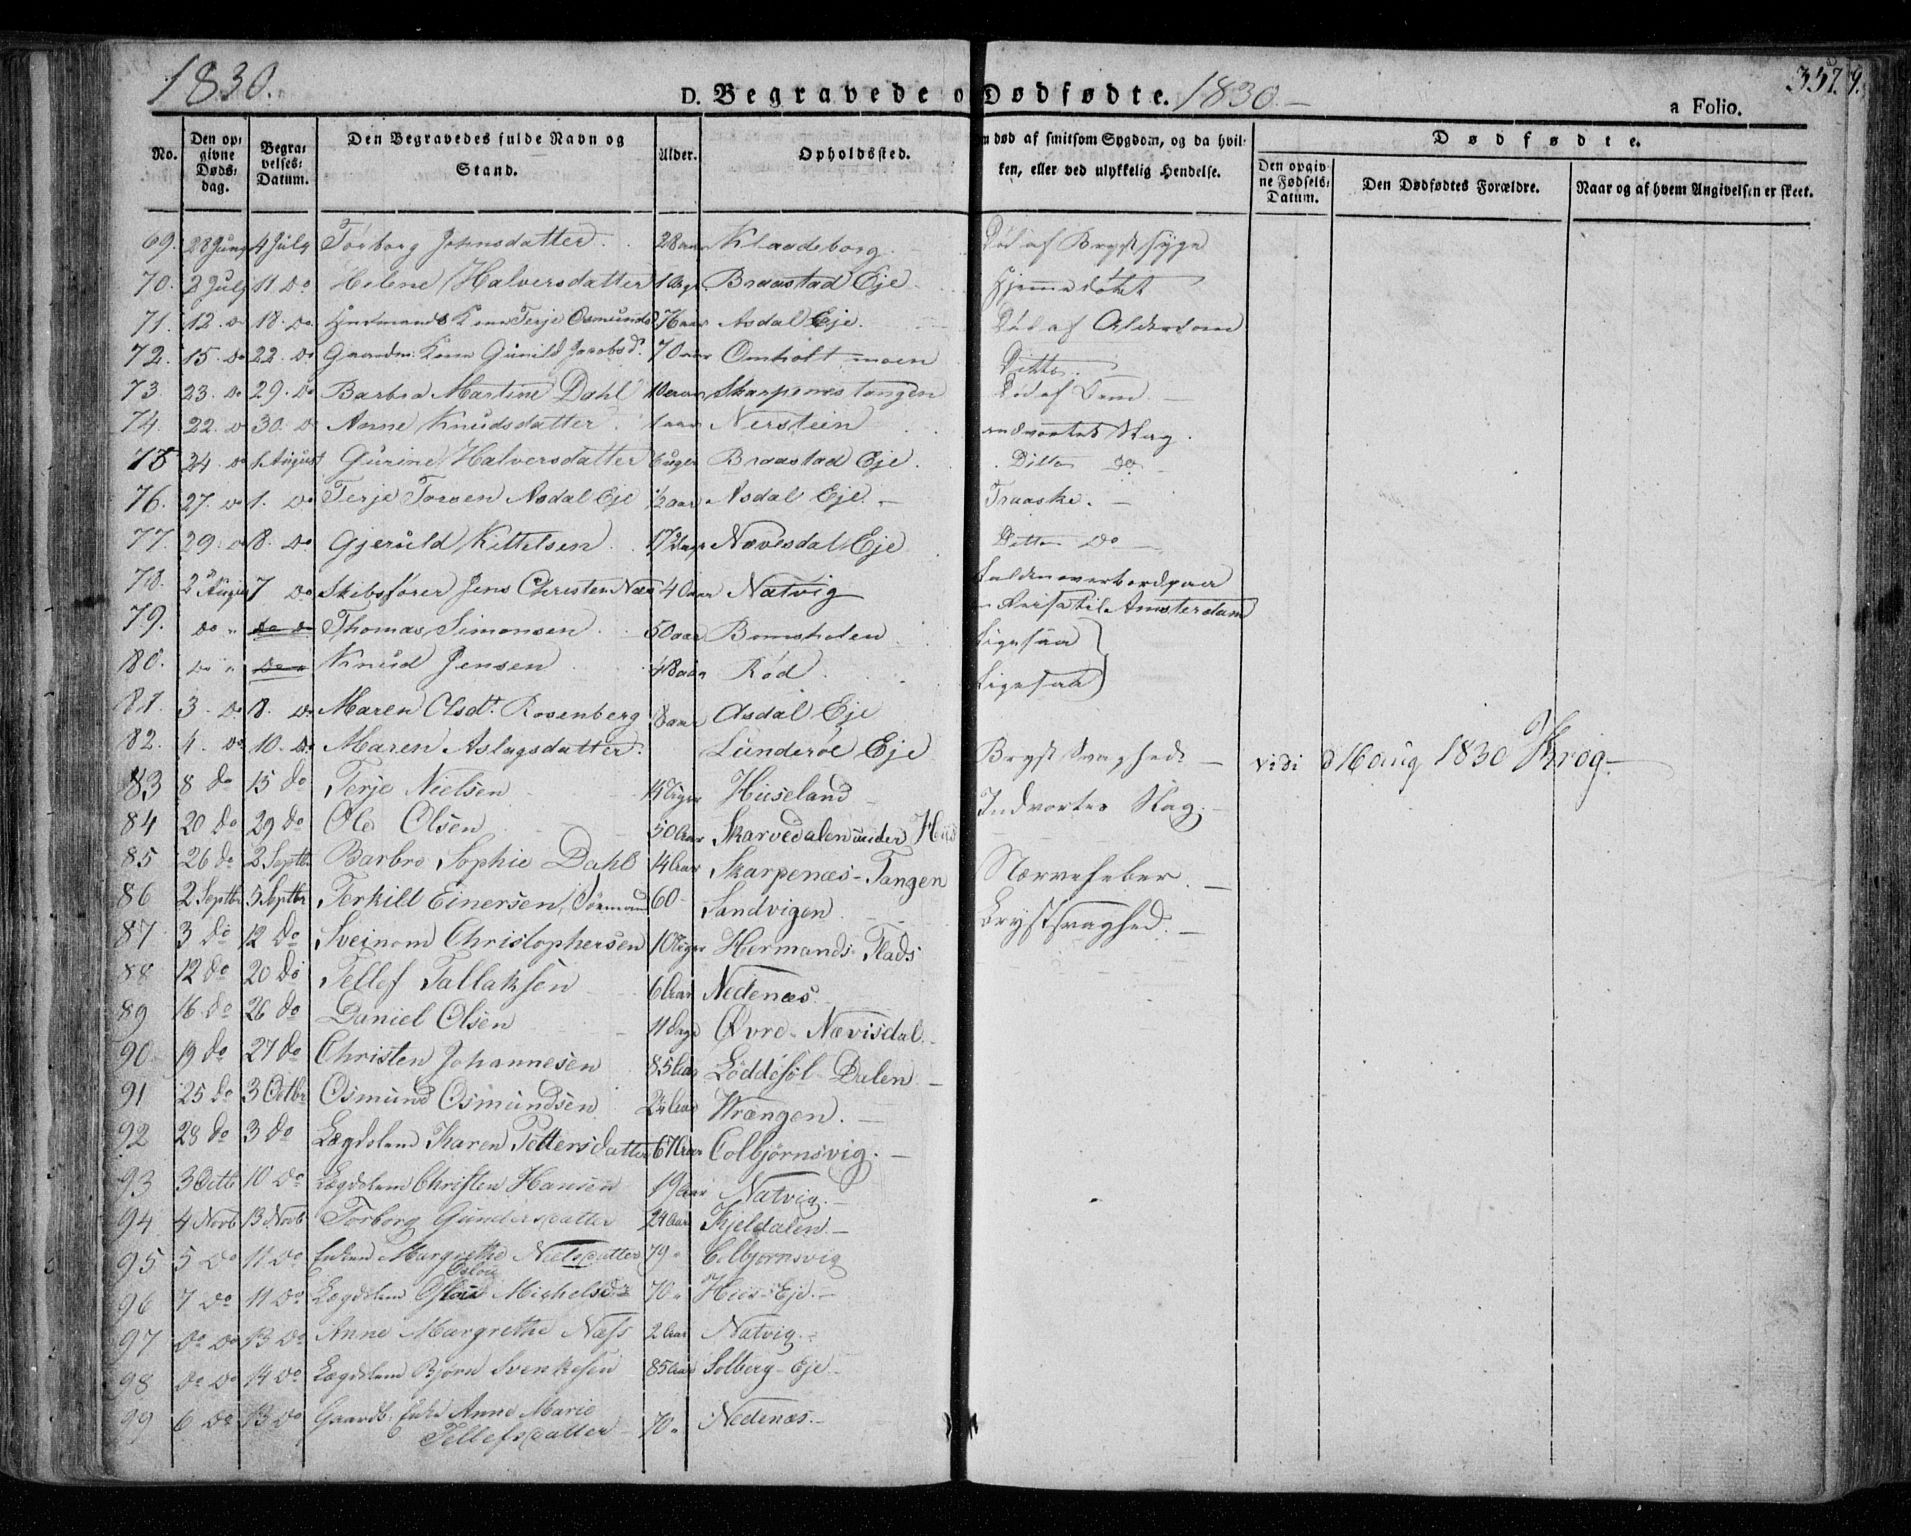 1830.
D. Begravede o Dødfødte. 1830.
a Folio.
357
No. Den opgivne Dødsdag. Begravelses-Datum. Den Begravedes fulde Navn og Stand. Alder. Opholdssted. død af smitsom Sygdom, og da hvilken, eller ved ulykkelig Hendelse. Dødfødte. Den opgivne Fødsels-Datum. Den Dødfødtes Forældre. Naar og af hvem Angivelsen er skeet.
69. 28 Juny 4 July Torborg Johnsdatter. 28 aar Klaadeborg. Død af Brystsyge
70. 2 July 11 Do Helene Halversdatter Braastad Eje. Hjemmedøbt
71. 12. Do 18. Do Huusmands Kone Terje Osmunds 76 aar Asdal Eje. Død af Alderdom
72. 15. Do 22. Do Gaardm: Kone Gunild Jacobsd. 70 aar Omholt moen Ditto.
73 23. Do 29. Do Barbra Martine Dahl 10 aar Skarpenes tangen Død af
74. 22. Do 30. Do Anne Knudsdatter. 1 aar Nerstein indvortes Slag.
75 24 Do 1. August Gurine Halversdatter 6 uger Braastad Eje. Ditto Do
76. 27. Do 1. Do Terje Asdal Eje 1/2 aar Asdal Eje. Traaske.
77. 29. Do 8. Do Gjeruld Kittelsen. Nævesdal Eje Ditto Do
78. 2 August 7 Do Skibsfører Jens Christen Næs 40 aar Natvig falden overbord paa Reisa til Amsterdam
79. Do " Do Do Thomas Simonsen. 50 aar Bomsholen Ligesaa
80. Do " Do Knud Jensen 48 aar Rød. Ligesaa
81. 3. Do 8. Do Maren Olsdt. Rosenberg 8 aar Asdal Eje
82. 4. Do 10. Do Maren Aslagsdatter. Lunderøe Eje Bryst Svaghed Vidi d 16 aug 1830 Krog
83 8 do 15 do Terje Nielsen Huseland Indvortes Slag.
84 20 do 29 do Ole Olsen 50 Aar Skarvedalen under Hiis
85 26 do 2 Septbr Barbro Sophie Dahl 14 Aar Skarpenæs-Tangen Nærvefeber.
86 2 Septbr 5 Septbr Terkild Einersen, Sømand 60 Sandvigen Brystsvaghed.
87 3 do 12 do Sveinom Christophersen 10 Uger Hermands-Plads
88 12 do 20 do Tellef Tallaksen 6 Aar Nedenæs
89 16 do 26 do Daniel Olsen 11 dage Øvre-Nævisdal.
90 19 do 27 do Christen Johannesen 85 Aar Løddesøl-Dalen
91 25 do 3 Octbr Osmund Osmundsen Aar Vrængen.
92 28 do 3 do Lægdslem Karen Pettersdatter 67 Aar Colbjørnsvig.
93 3 Octb 10 Do Lægdslem Christen Hansen 19 aar Natvig.
94 4 Novb 13 Novb Torborg Gundersdatter 24 Aar Kjeldalen
95 5 Do 11 Do Enken Margrethe Nielsdatter 79 " Colbjørnsvig
96 7 Do 11 Do Lægdslem Oslou Michelsdr 70 " Hiis-Eje.
97 Do Do 13 Do Anne Margrethe Næss 2 Aar Natvig.
98 Do Do 14 Do Lægdslem Bjørn Svenkesen 85 Aar Solberg-Eje
99 6 Do 13 Do Gaardb. Enke Anne Marie Tellefsdatter 70 " Nedenæs.